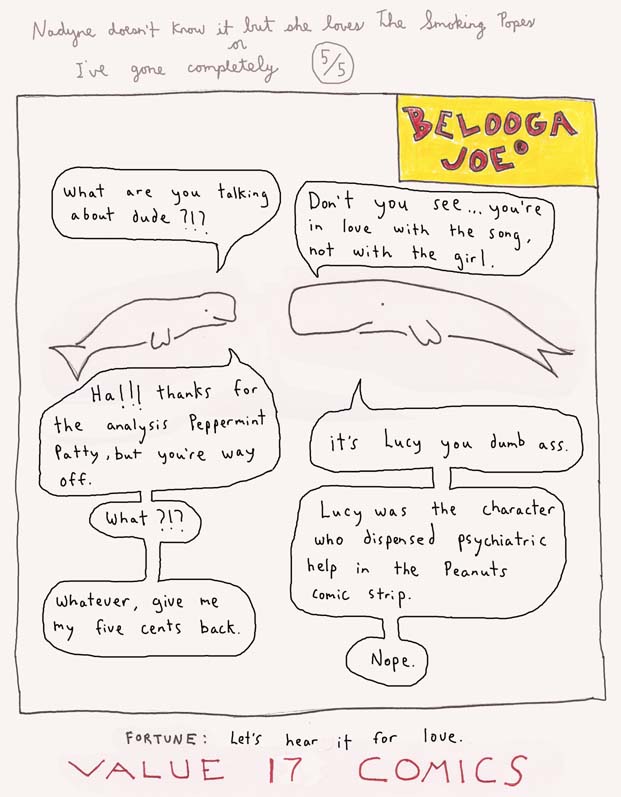 Nadyne doesn't know it but she loves The Smoking Popes
or
I've gone completely 5/5
BELOOGA
JOE®
What are you talking
about dude ?!?
Don't you see... you're
in love with the song,
not with the girl.
Ha!!! thanks for
the analysis Peppermint
Patty, but you're way
off.
it's Lucy you dumb ass.
What ?!?
Lucy was the character
who dispensed psychiatric
help in the Peanuts
comic strip.
Whatever, give me
my five cents back.
Nope.
FORTUNE: Let's hear it for love.
VALUE 17 COMICS